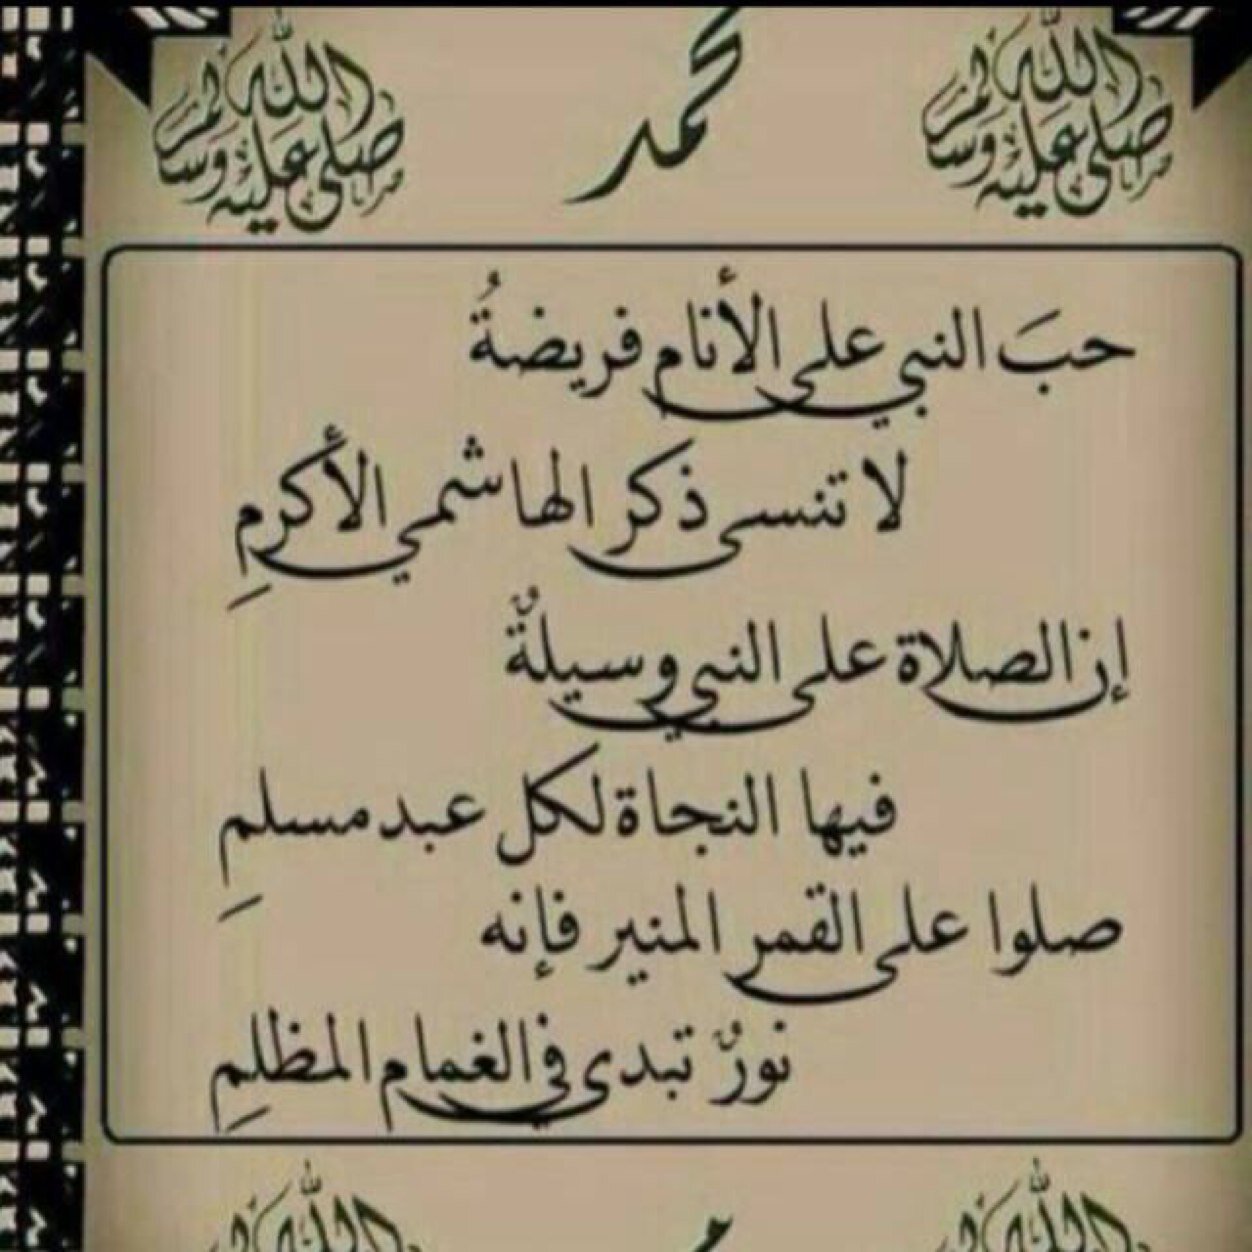 صلى الله عليه وسلم محمد صلى الله عليه وسلم
حبَ النبي على الأنام فريضةُ
لا تنسى ذكر الهاشمي الأكرمِ
إن الصلاة على النبي وسيلةٌ
فيها النجاة لكل عبد مسلمِ
صلوا على القمر المنير فإنه
نورٌ تبدى في الغمام المظلمِ